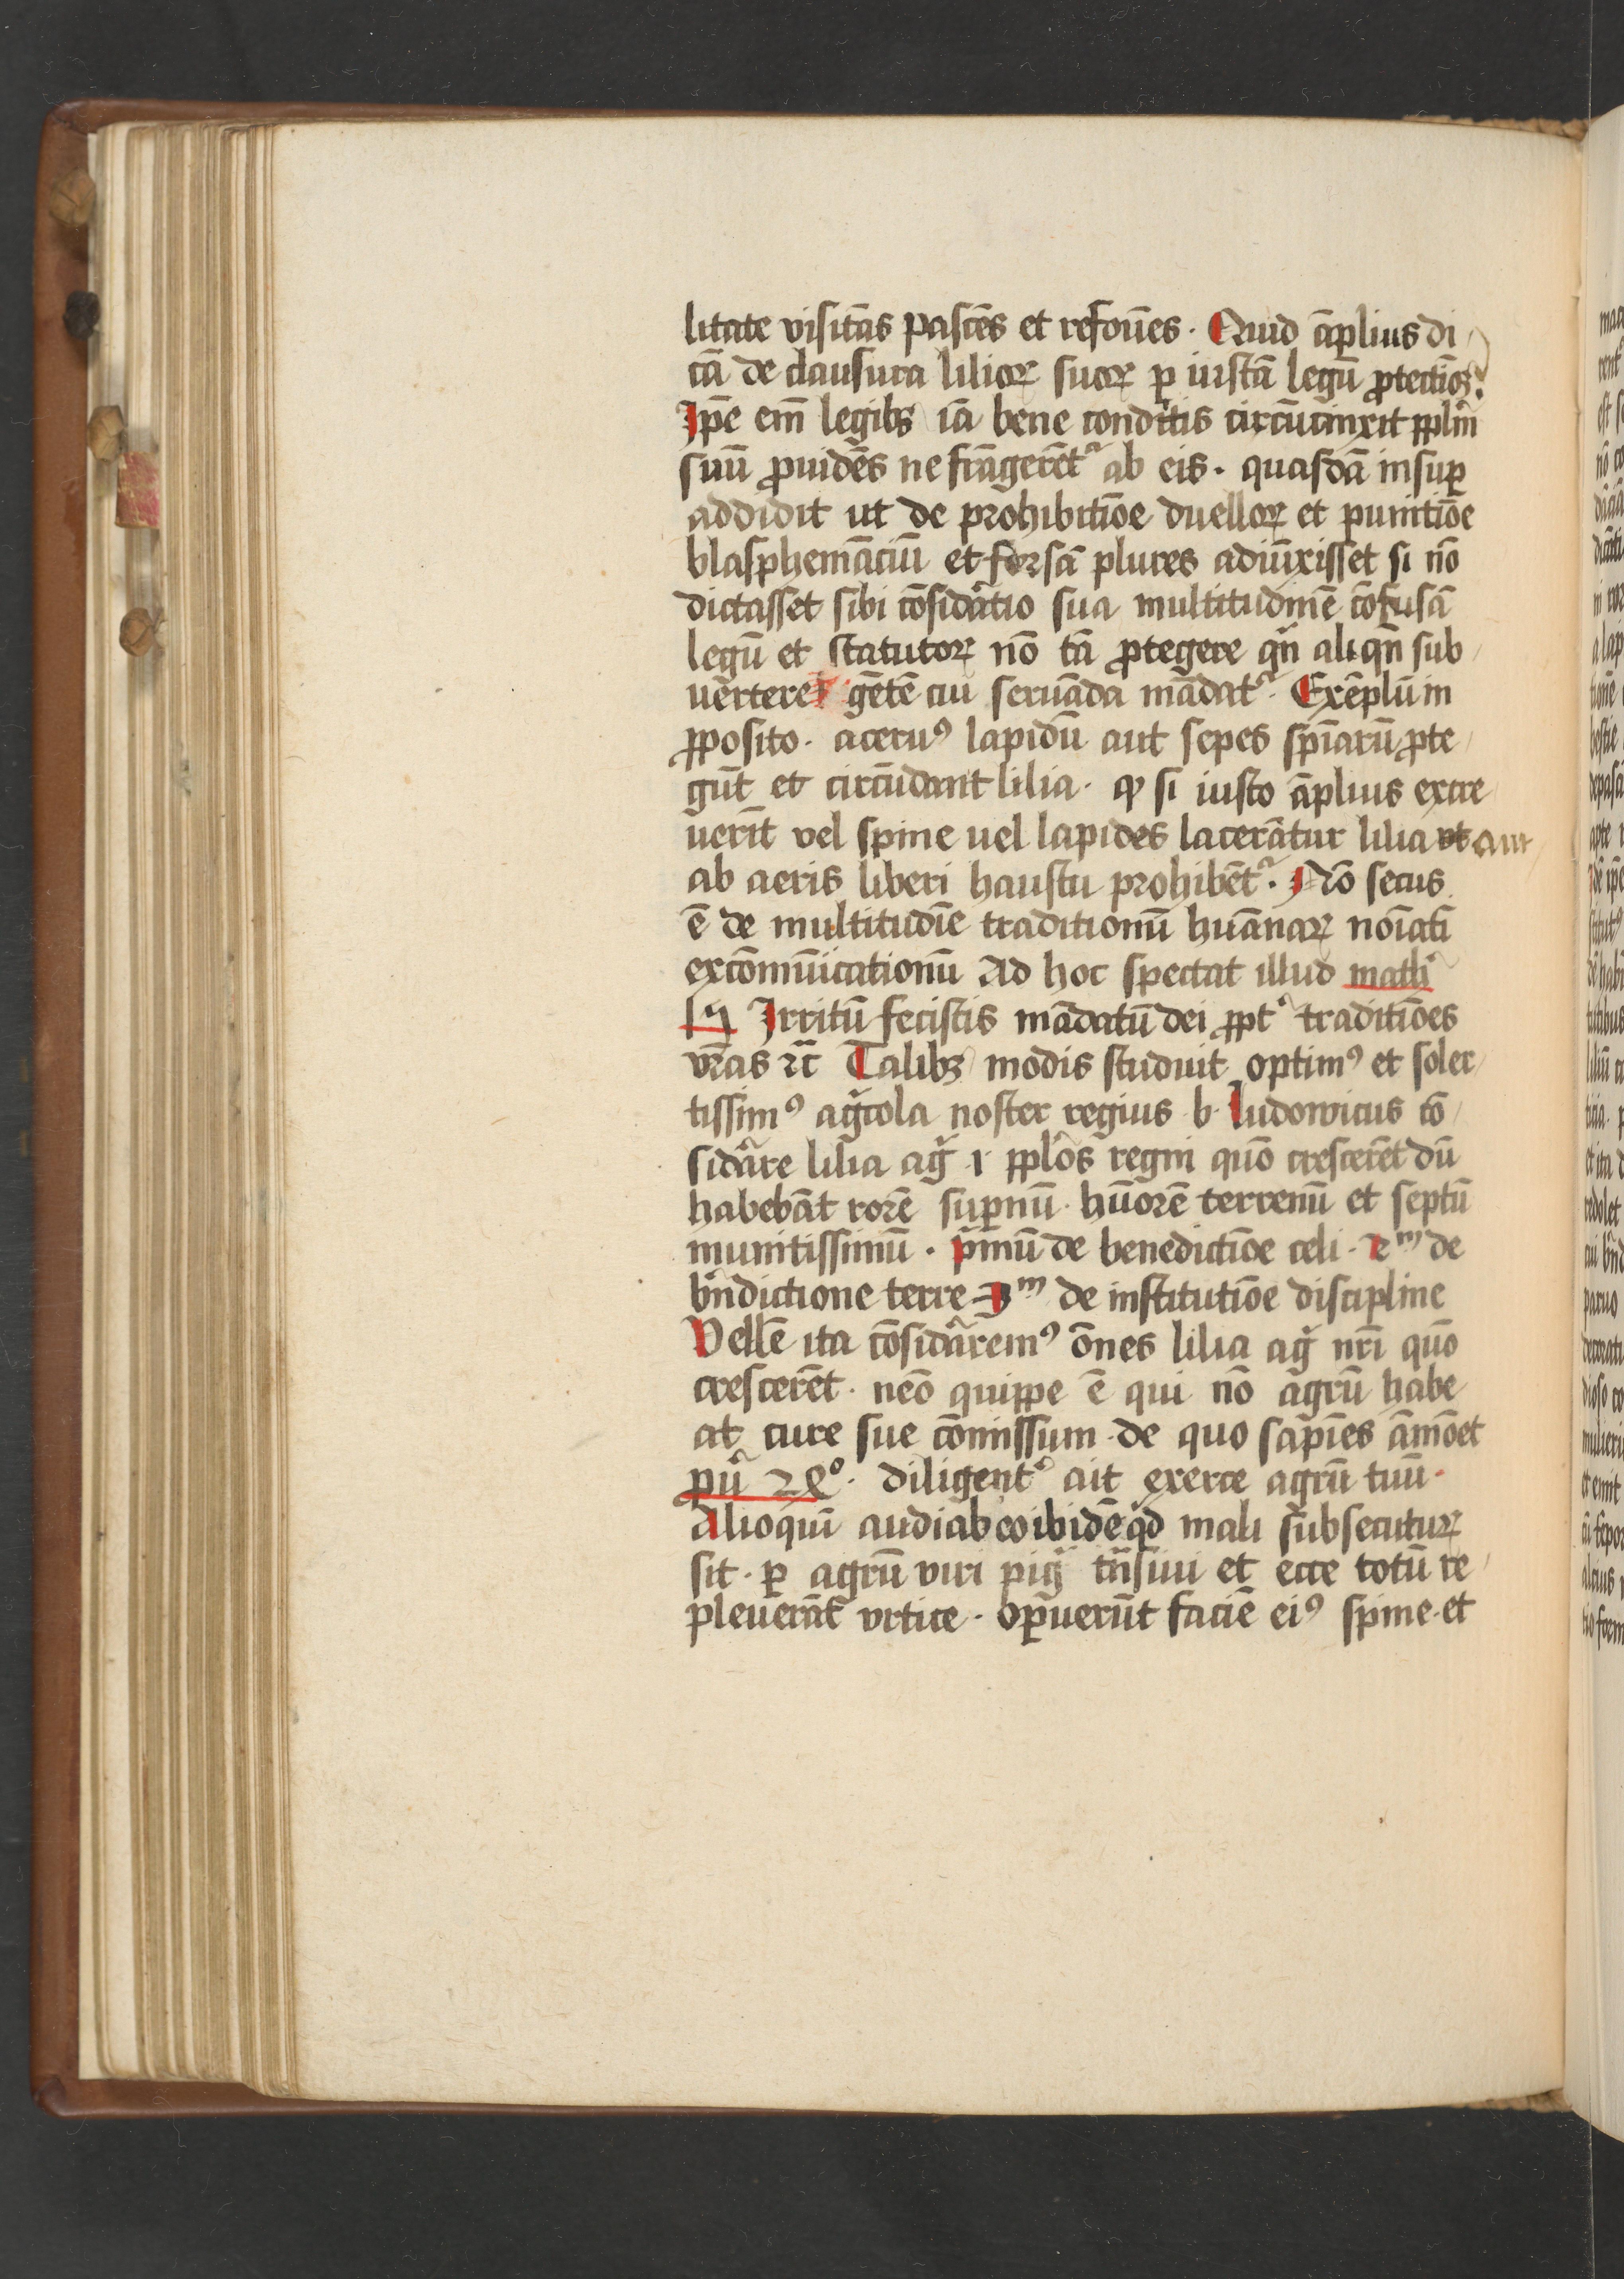 litate visitās pascēs et refouēs. Quid āplius di
cā de clausura lilioꝝ suoꝝ ꝑ iustā legū ꝓtectioꝫ.
Ipē em̄ legibꝫ iā bene conditis circūcinxit pplm̄
suū ꝓuidēs ne frāgerēt᷑ ab eis. quasdā insuꝑ
addidit ut de prohibitiōe duelloꝝ et punitiōe
blasphemāciū et forsā plures adiūxisset si nō
dictasset sibi cōsidāᷓtio sua multitudinē cōfusā
legū et statutoꝝ nō tā ꝓtegere qn̄ aliqn̄ sub
uertere gētē cui seruāda mādat᷑. Exēplū in
ꝓposito. aceruꝰ lapidū aut sepes spīarū ꝓte
gūt et circūdant lilia. ꝙ si iusto āplius excre
uerīt vel spine uel lapides lacerātur lilia aut
ab aeris liberi haustu prohibēt᷑. Nō secus
ē de multitudīe traditionū huānaꝝ noīati
excōmūicationū Ad hoc spectat illud math̓
15 Irritū fecistis mādatū dei ꝓpt᷑ traditiōes
vr̄as ⁊c̄ Talibꝫ modis studuit optimꝰ et soler
tissimꝰ ag̓cola noster regius b. ludowicus cō
sidāre lilia ag̓ .i. pplōs regni quō crescerēt dū
habebāt rorē suꝑnū. hūorē terrenū et septū
munitissimū. p̓mū de benedictiōe celi. 2ᵐ de
bn̄dictione terre 3ᵐ de institutiōe discipline
Vellē ita cōsidāremꝰ ōnes lilia ag̓ nr̄i quō
crescerēt. nēo quippe ē qui nō agrū habe
at cure sue cōmissum. de quo sapīes āmōet
ꝓū 24º. diligent᷑ ait exerce agrū tuū.
Alioquī audi ab eo ibidē qd̄ mali subsecutuꝝ
sit. ꝑ agrū viri pig̓ trn̄siui et ecce totū re
pleuerāt vrtice. oꝑuerūt faciē eiꝰ spine. et